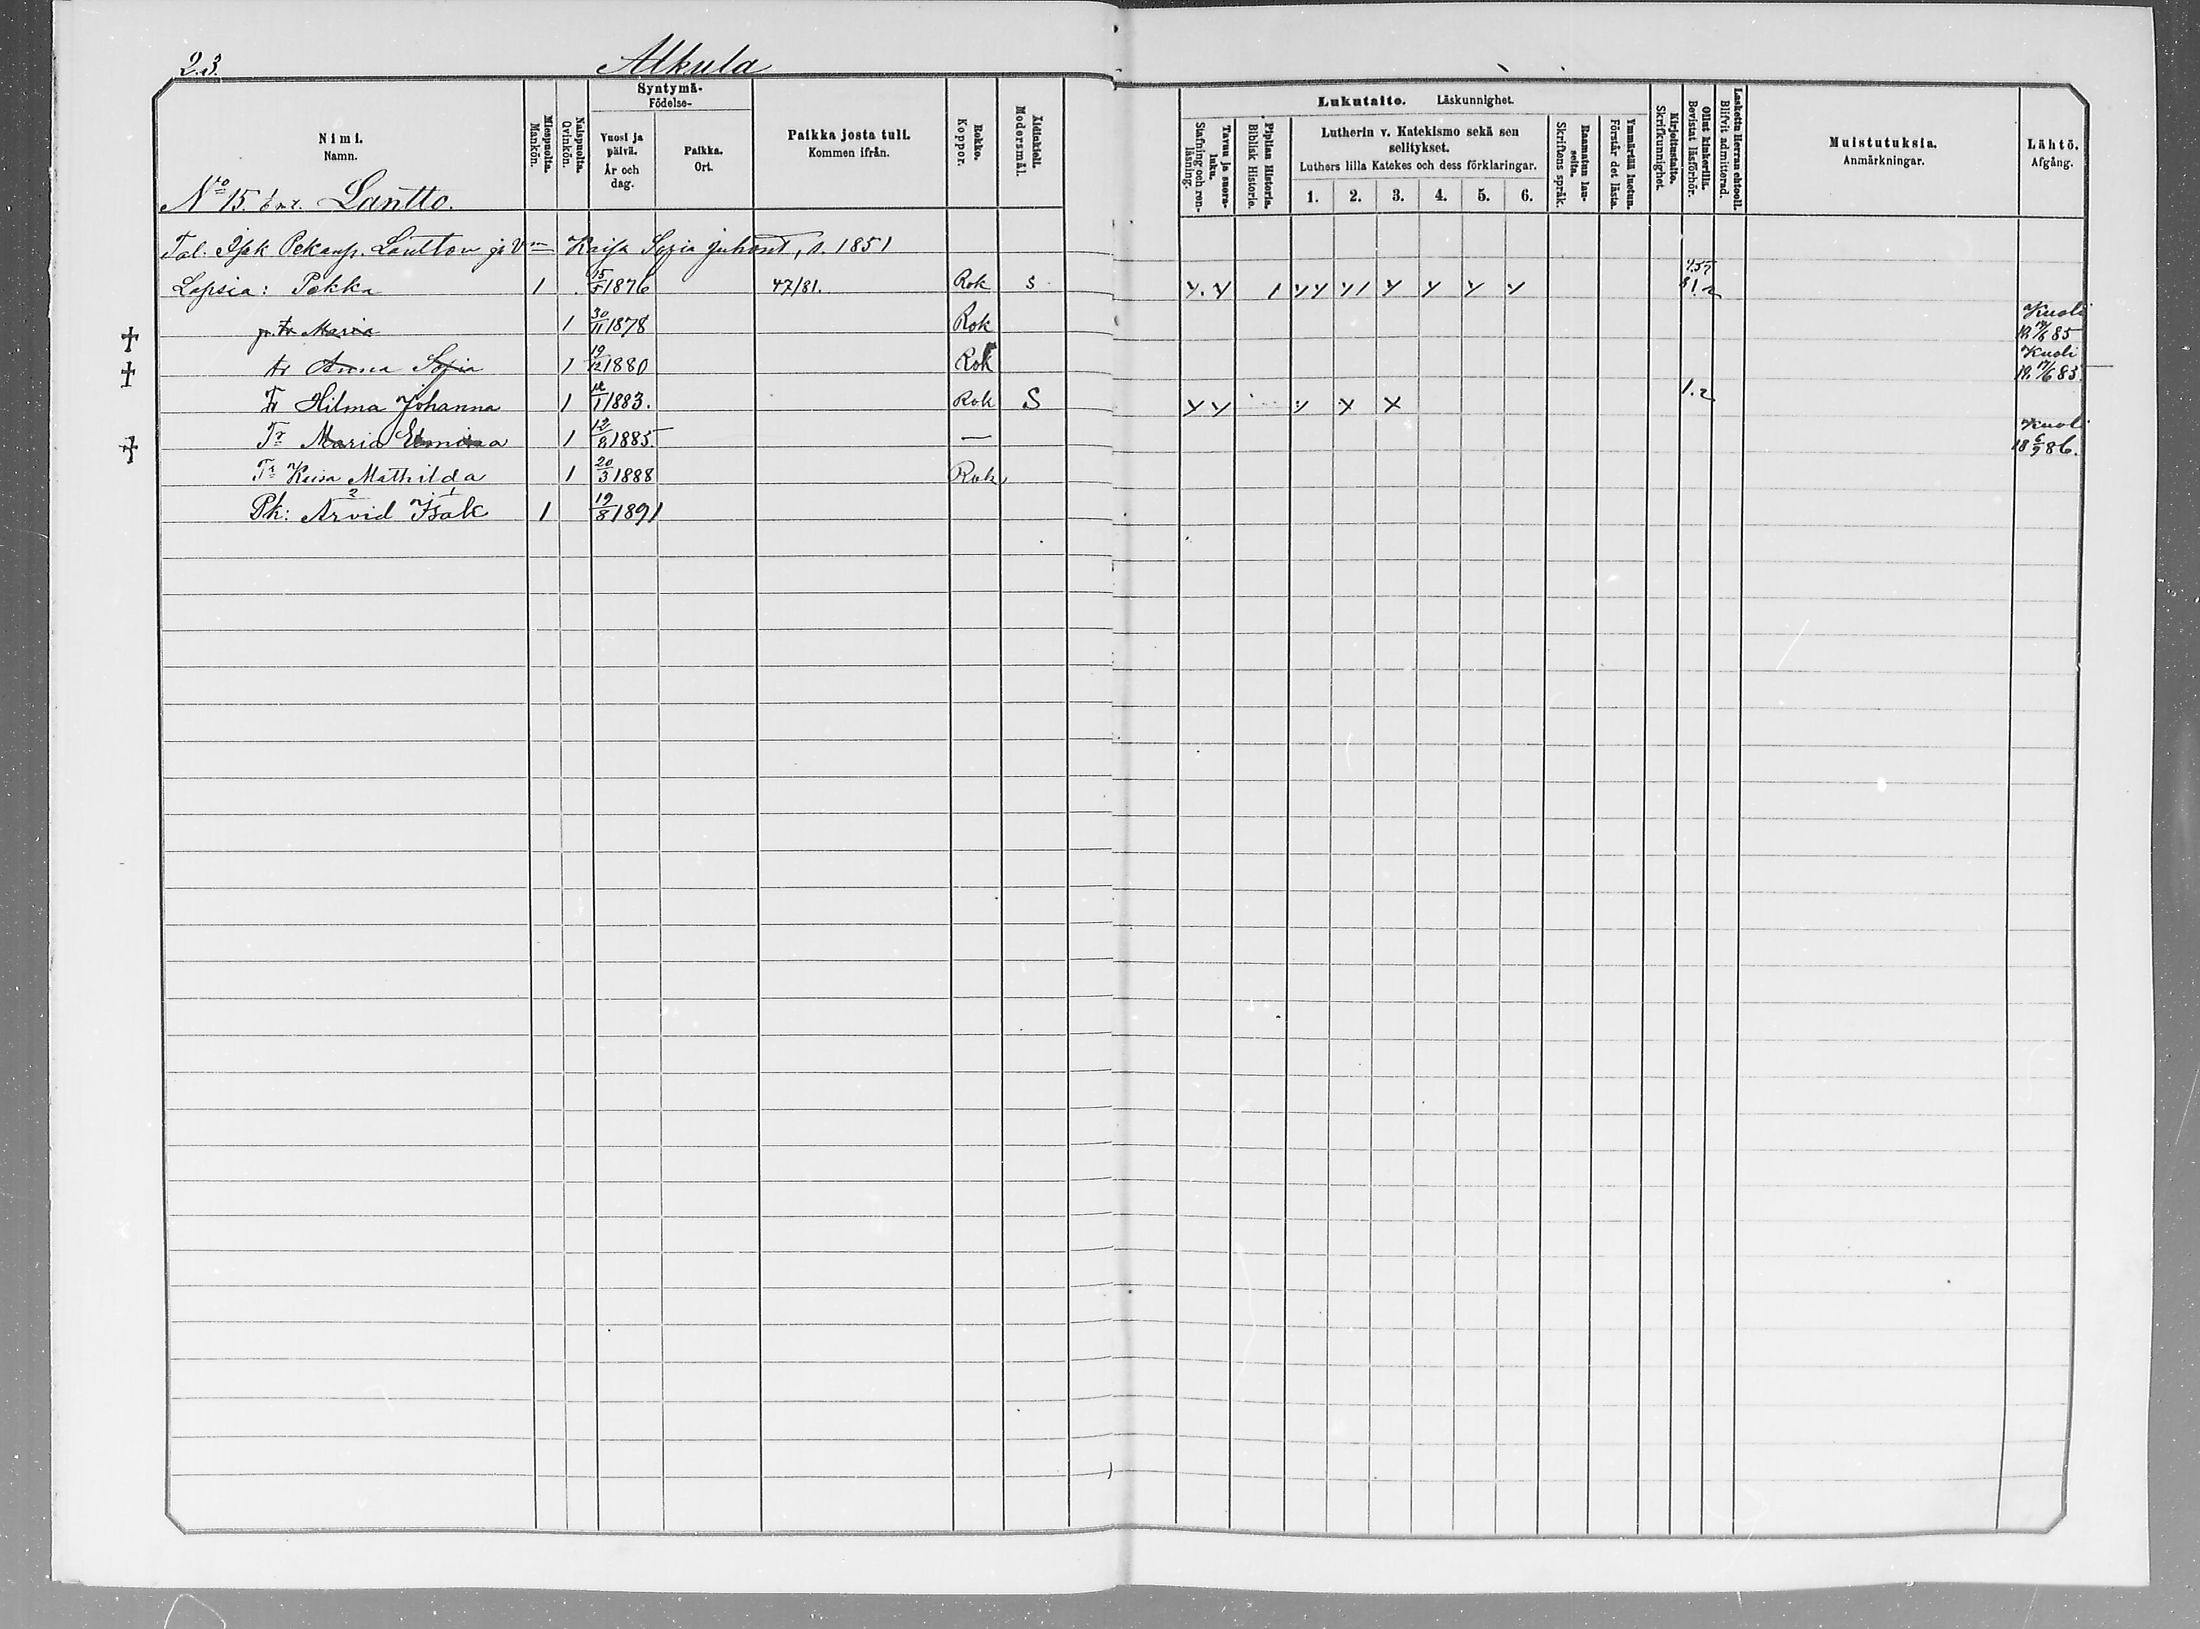 23.
Alkula
Nimi.
Namn.
Miespuolta.
Mankön.
Naispuolta.
Qvinkön.
Syntymä-
Födelse-
Vuosi ja päivä.
År och dag.
Paikka.
Ort.
Paikka josta tuli.
Kommen ifrån.
Rokko.
Koppor.
Äidinkieli.
Modersmål.
Lukutaito. Läskunnighet.
Tavuu ja suora-
luku.
Stafning och ren-
läsning.
Piplian Historia.
Biblisk Historie.
Lutherin v. Katekismo sekä sen
selitykset.
Luthers lilla Katekes och dess förklaringar.
1. 2. 3. 4. 5. 6.
Raamatun lau-
seita.
Skriftens språk.
Ymmärtää luetun.
Förstår det lästa.
Kirjoitustaito.
Skrifkunnighet.
Ollut kinkerillä.
Bevistat läsförhör.
Laskettu Herran ehtooll.
Blifvit admitterad.
Muistutuksia.
Anmärkningar.
Lähtö.
Afgång.
No 15. Lantto.
Tal. Isak Pekanp. Lantton ja Vm Kaisa Sofia Juhont, s. 1851
Lapsia: Pekka 1 15/5 1876 47/81. Rok s 81.2
p. tr Maria 1 30/11 1878 Rok Kuoli 19/6 85
tr Anna Sofia 1 19/12 1880 Rok Kuoli 17/6 85.
Tr Hilma Johanna 1 1883. Rok S 1.2
Tr Maria 1 12/8 1885 — Kuoli
18 6/9 86.
Tr Kaisa Mathilda 1 20/3 1888 Rok
2 1
Pk: Arvid Isak 1 19/8 1891